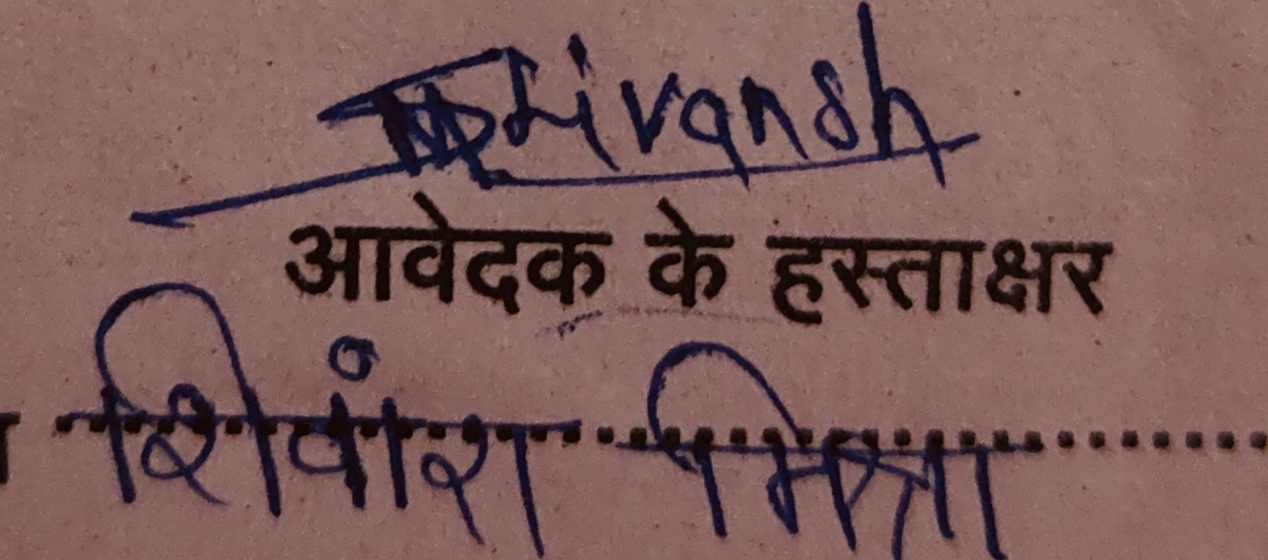 Shivansh
आवेदक के हस्ताक्षर
शिवांश मिश्रा